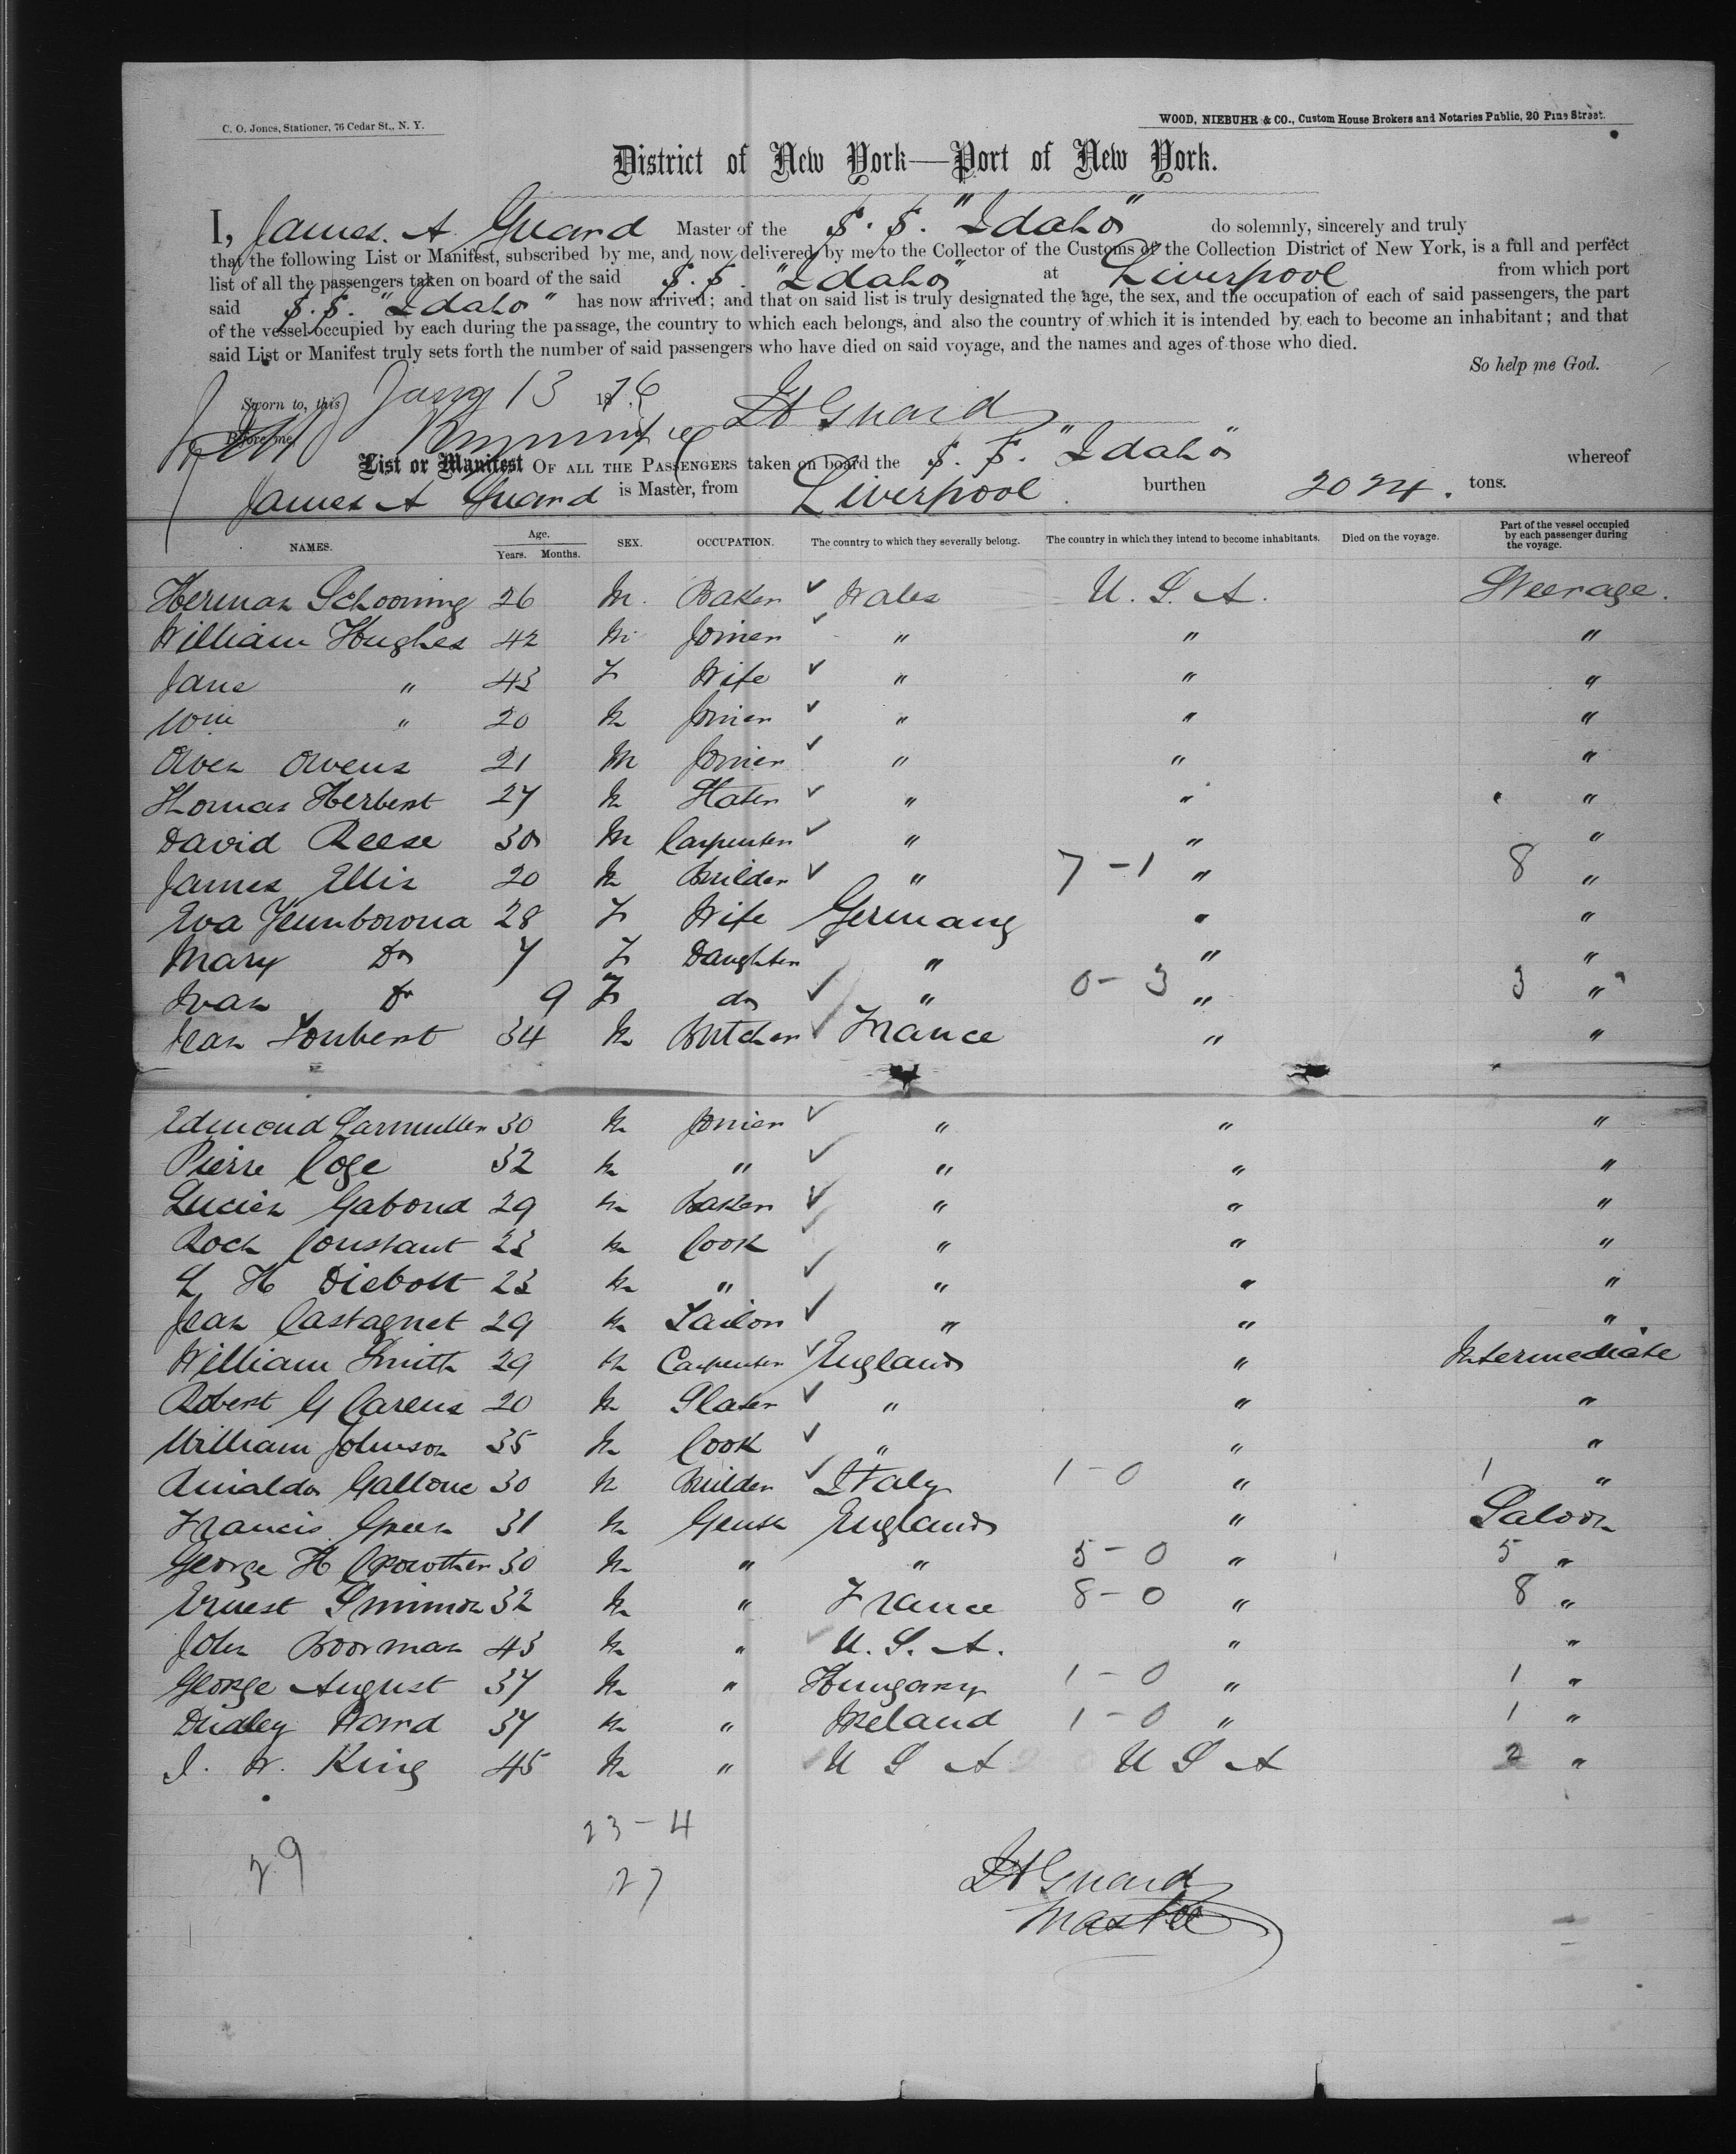 C. O. Jones, Stationer, 76 Cedar St., N. Y.
WOOD, NIEBUHR & CO., Custom House Brokers and Notaries Public, 20 Pine Street.
District of New York—Port of New York.
I, James. A Guard Master of the S. S. "Idaho" do solemnly, sincerely and truly
that the following List or Manifest, subscribed by me, and now delivered by me to the Collector of the Customs of the Collection District of New York, is a full and perfect
list of all the passengers taken on board of the said S. S. "Idaho" at Liverpool from which port
said S. S. "Idaho" has now arrived; and that on said list is truly designated the age, the sex, and the occupation of each of said passengers, the part
of the vessel occupied by each during the passage, the country to which each belongs, and also the country of which it is intended by each to become an inhabitant; and that
said List or Manifest truly sets forth the number of said passengers who have died on said voyage, and the names and ages of those who died.
So help me God.
Sworn to, this Jany 13 1876 JA Guard
Before me,
List or Manifest OF ALL THE PASSENGERS taken on board the S. S. "Idaho" whereof
James A Guard is Master, from Liverpool. burthen 2024. tons.
NAMES. Age. Years. Months. SEX. OCCUPATION. The country to which they severally belong. The country in which they intend to become inhabitants. Died on the voyage. Part of the vessel occupied by each passenger during the voyage.
Herman Schooning 26 M. Baker ✓ Wales U. S. A. Steerage.
William Hughes 42 M Joiner ✓ " " "
Jane " 43 F Wife ✓ " " "
Wm " 20 M Joiner ✓ " " "
Owen Owens 21 M Joiner ✓ " " "
Thomas Herbert 27 M Slater ✓ " " "
David Reese 30 M Carpenter ✓ " " "
James Ellis 20 M Builder ✓ " 7-1 " 8 "
Eva 28 F Wife Germany " "
Mary Do 7 F Daughter " " "
Ivan Do 9 F do ✓ " 0-3 " 3 "
Jean Joubert 34 M Butcher ✓ France " "
Edmond 30 M Joiner ✓ " " "
Pierre Coge 32 M " ✓ " " "
Lucien Gabond 29 M Baker ✓ " " "
Roch Constant 23 M Cook ✓ " " "
L H Diebolt 23 M " ✓ " " "
Jean Castagnet 29 M Tailor ✓ " " "
William Smith 29 M Carpenter ✓ England " Intermediate
Robert G Carens 20 M Slater ✓ " " "
William Johnson 35 M Cook ✓ " " "
Rinaldo Gallone 30 M Builder ✓ Italy 1-0 " 1 "
Francis Green 31 M Gent England " Saloon
George H Crowther 30 M " " 5-0 " 5 "
Ernest Simmon 32 M " France 8-0 " 8 "
John Boorman 43 M " ✓ U. S. A. " "
George August 37 M " Hungary 1-0 " 1 "
Dudley Ward 37 M " Ireland 1-0 " 1 "
J. W. King 45 M " U S A U S A 2 "
23-4
29
27
JA Guard
Master